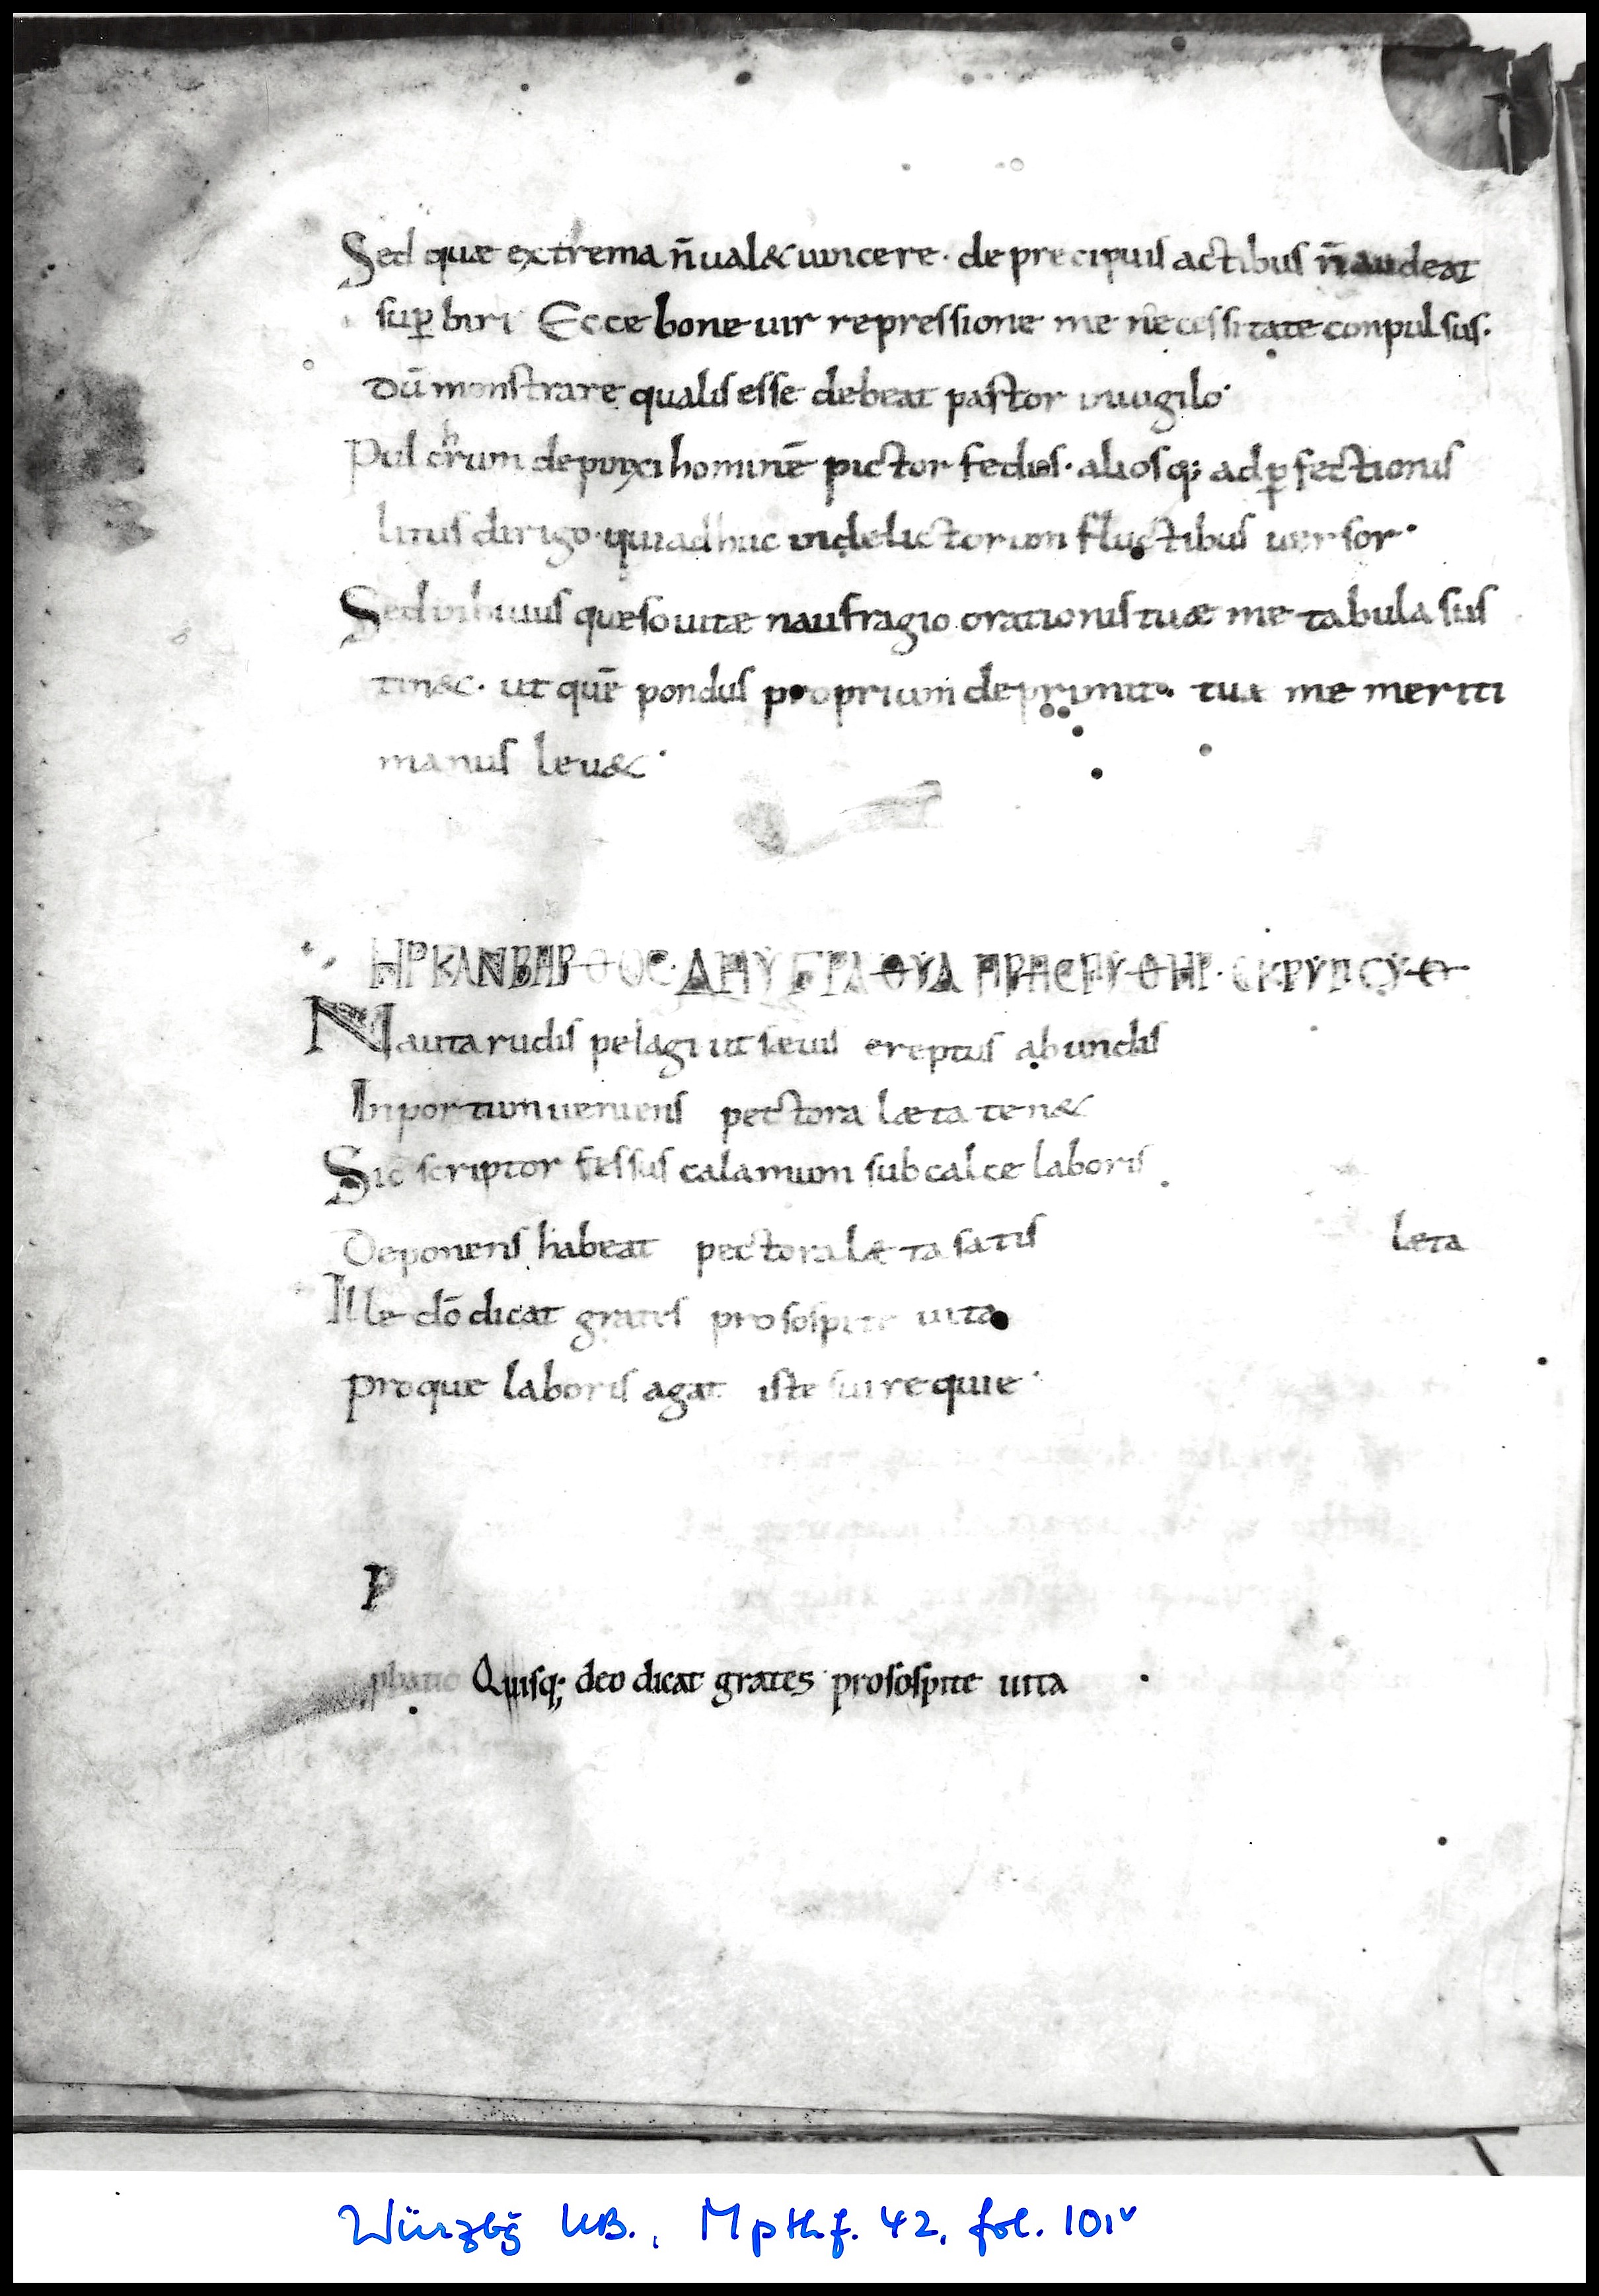 Sed quæ extrema n̄ ual& uincere · de precipuis actibus n̄ audeat
sup̲ biri Ecce bone uir repressione me necessitate conpulsus·
Dū monstrare qualis esse debeat pastor inuigilo·
Pulcrum depinxi hominē pictor fedus· aliosq; ad p̲fectionis
litus dirigo· qui adhuc in delictorum fluctibus uersor·
Sed in huius queso uitæ naufragio orationis tuæ me tabula sus
tin&· ut quē pondus proprium deprimit· tuæ me meriti
manus leu&·
Nauta rudis pelagi ut sæuis ereptus ab undis
In portum ueniens pectora læta ten&
Sic scriptor fessus calamum sub calce laboris
Deponens habeat pectora læta satis
læta
Ille dō dicat grates pro sospite uita
Proque laboris agat iste sui requie·
P
Quisq; deo dicat grates pro sospite uita
Würzbg UB., M p th f. 42, fol. 101v